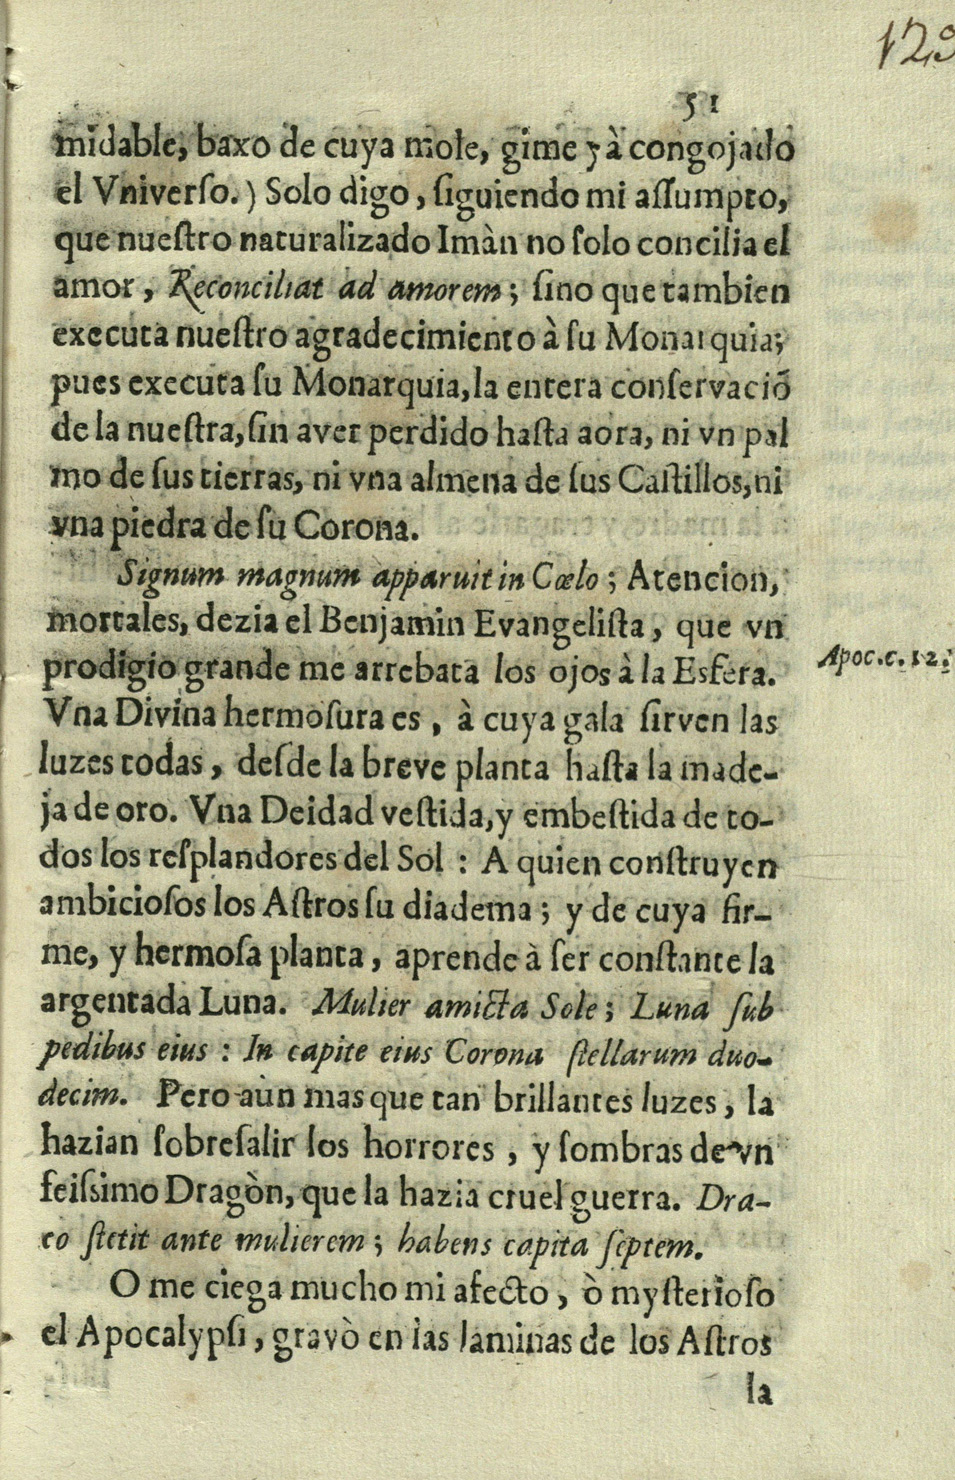 123
51
midable, baxo de cuya mole, gime y à congojado
el Vniverſo.) Solo digo, ſiguiendo mi aſſumpto,
que nueſtro naturalizado Imàn no ſolo concilia el
amor, Reconciliat ad amorem; ſino que tambien
executa nueſtro agradecimiento à ſu Monarquia;
pues executa ſu Monarquia, la entera conſervaciõ
de la nueſtra, ſin aver perdido haſta aora, ni vn pal
mo de ſus tierras, ni vna almena de ſus Caſtillos, ni
vna piedra de ſu Corona.
Signum magnum apparuit in Cœlo; Atencion,
mortales, dezia el Benjamin Evangeliſta, que vn
prodigio grande me arrebata los ojos à la Esfera.
Apoc. c. 12.
Vna Divina hermoſura es, à cuya gala ſirven las
luzes todas, deſde la breve planta haſta la made-
ja de oro. Vna Deidad veſtida, y embeſtida de to-
dos los reſplandores del Sol: A quien conſtruyen
ambicioſos los Aſtros ſu diadema; y de cuya fir-
me, y hermoſa planta, aprende à ſer conſtante la
argentada Luna. Mulier amicta Sole; Luna ſub
pedibus eius: In capite eius Corona ſtellarum duo-
decim. Pero aùn mas que tan brillantes luzes, la
hazian ſobreſalir los horrores, y ſombras de vn
feiſsimo Dragòn, que la hazia cruel guerra. Dra-
co ſtetit ante mulierem; habens capita ſeptem.
O me ciega mucho mi afecto, ò myſterioſo
el Apocalypſi, gravò en las laminas de los Aſtros
la